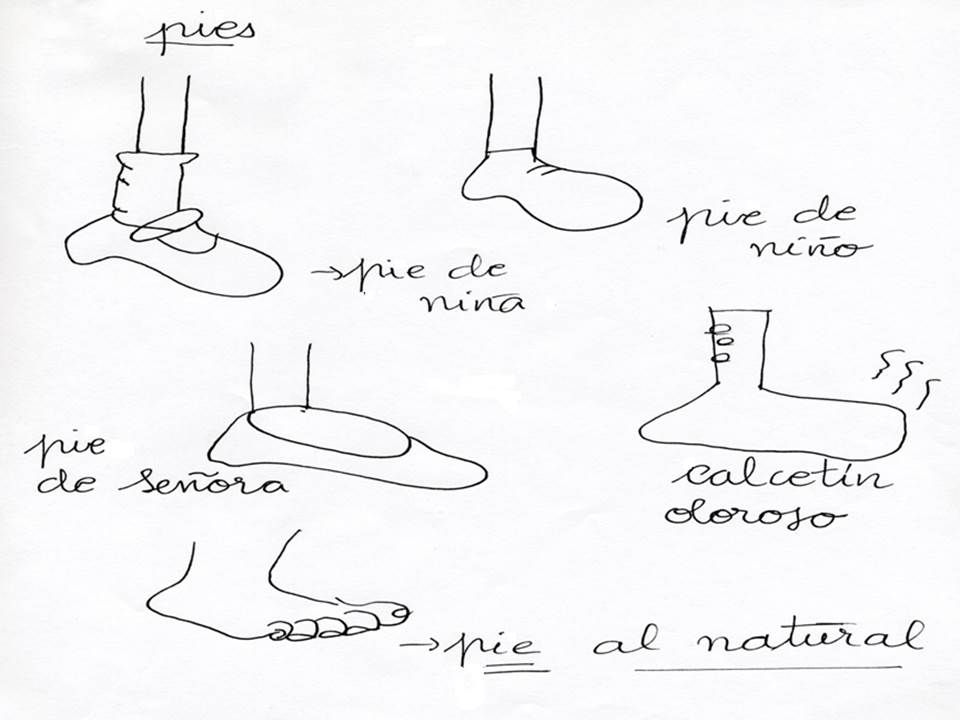 pies
pie de
niño
→pie de
niña
pie
de señora
calcetín
oloroso
→pie al natural